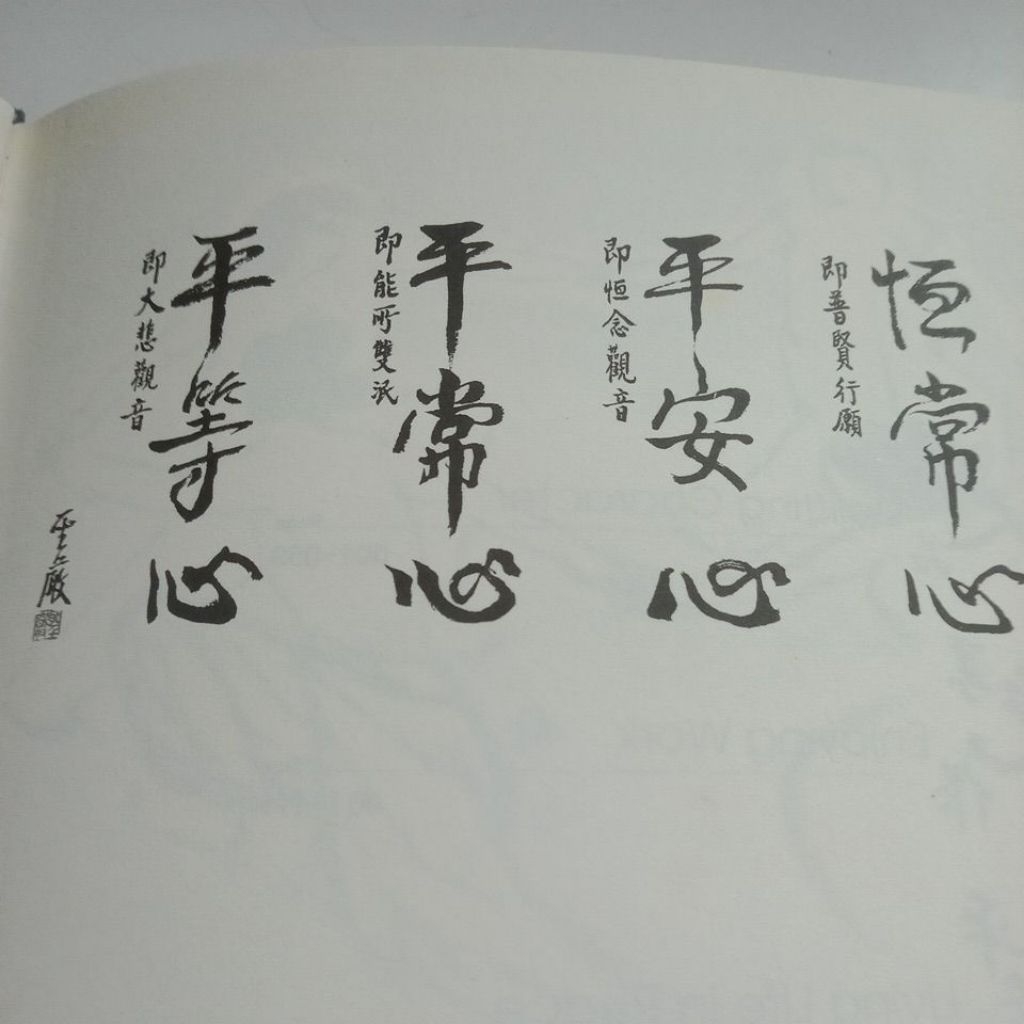 恒常心
即普賢行願
平安心
即恒念觀音
平常心
即能所雙泯
平等心
即大悲觀音
聖嚴